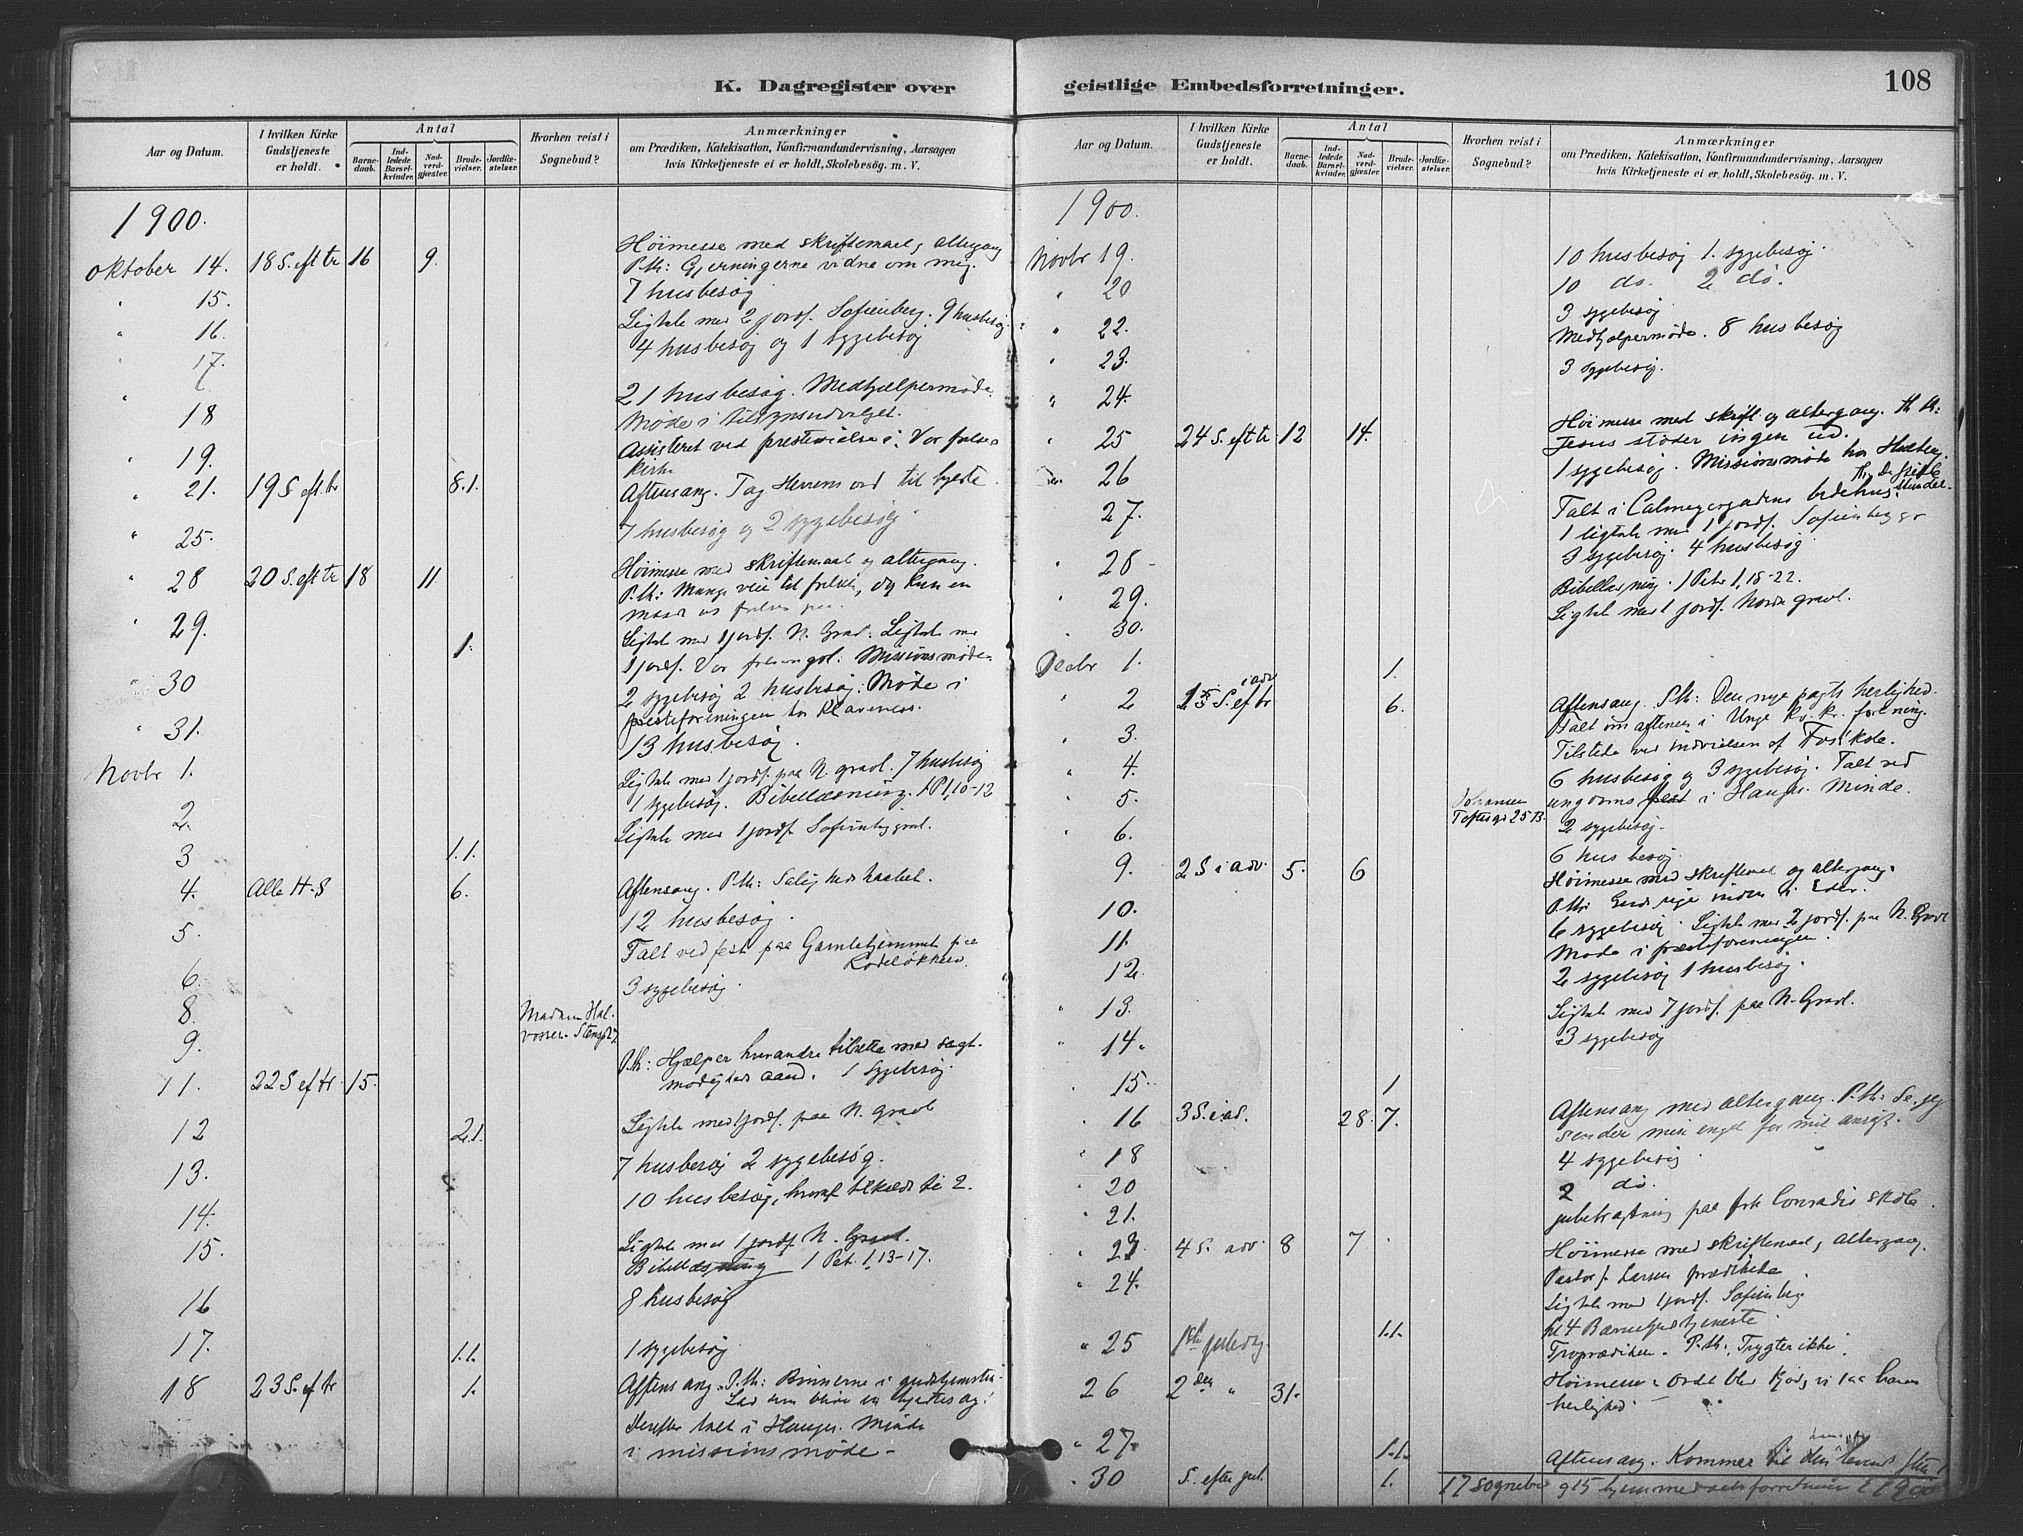 K. Dagregister over geistlige Embedsforretninger.
108
Aar og Datum.
I hvilken Kirke Gudstjeneste er holdt.
Antal
Barnedaab.
Indledede Barselkvinder.
Nadverdgjæster.
Brudevielser.
Jordfæstelser.
Hvorhen reist i Sognebud?
Anmærkninger
om Prædiken, Katekisation, Konfirmandundervisning, Aarsagen
hvis Kirketjeneste ei er holdt, Skolebesøg. m. V.
1900.
Høimesse med skriftemaal, altergang
Oktober 14. 18 S. eft tr 16 9. P.th: Gjerningerne vidne om mig.
" 15. 7 husbesøg
" 16. Ligtale med 2 jordf. Sofienberg. 9 husbesøg.
" 17. 4 husbesøg og 1 sygebesøg
" 18 21 husbesøg. Medhjælpermøde.
Møde i tilsynsudvalget.
" 19. Assisteret ved prestevielse i Vor frelsers
kirke
" 21. 19 S. eft. tr 8.1. Aftensang. Tag Herrens ord til hjerte
" 25. 7 husbesøg og 2 sygebesøg.
" 28 20 S. eft tr 18 11. Høimesse med skriftemaal og altergang.
P.th: Mange veie til frelse, og kun en
" 29. Ligtale med 1 jordf. N. Grav. Ligtale med
1. 1 jordf. Vor frelsers grvl. Missionsmøde.
" 30 2 sygebesøg 2 husbesøg. Møde i
præsteforeningen hos Klaveness.
" 31. 13 husbesøg.
Novbr 1. Ligtale med 1 jordf. paa N. gravl. 7 husbesøg
1 sygebesøg. Bibellæsning. 1 P 1,10-12
2. Ligtale med 1 jordf. Sofienbg gravl.
3 1.1.
4. Alle H. S 6. Aftensang. P.th: Salighedshaabet.
5. 12 husbesøg.
6. Talt ved fest paa Gamlehjemmet paa
Rodeløkken.
8. 3 sygebesøg.
9. Madam Halvorsen
11. 22 S ef tr. 15. P.th: Hjælper hverandre tilrette med sagtmodigheds
aand. 1 sygebesøg.
12 2.1. Ligtale med 1 jordf. paa N. gravl
13. 7 husbesøg 2 sygebesøg.
14. 10 husbesøg, hvoraf tilkaldt til 2.
15. Ligtale med 1 jordf. N. Gravl.
Bibellæsning 1 Pet. 1,13-17.
16 8 husbesøg
17. 1.1. 1 sygebesøg
18 23 S. ef tr 1. Aftensang. P.th: Bønnerne i gudstjenesten.
Lad dem blive en hjertesag!
Derefter talt i Hauges Minde
i missionsmøde.
Aar og Datum.
I hvilken Kirke Gudstjeneste er holdt.
Antal
Barnedaab.
Indledede Barselkvinder.
Nadverdgjæster.
Brudevielser.
Jordfæstelser.
Hvorhen reist i Sognebud?
Anmærkninger
om Prædiken, Katekisation, Konfirmandundervisning, Aarsagen
hvis Kirketjeneste ei er holdt, Skolebesøg. m. V.
1900.
Novbr 19. 10 husbesøg 1 sygebesøg.
" 20 10 do. 2 do.
" 22. 3 sygebesøg
" 23. Medhjælpermøde. 8 husbesøg
" 24. 3 sygebesøg.
" 25 24 S. eft tr 12 14. Høimesse med skrift. og altergang. P. th:
Jesus støder ingen ud.
" 26 1 sygebesøg. Missionsmøde hos
" 27. Talt i Calmeyergadens bedehus.
1 ligtale med 1 jordf. Sofienberg gr
" 28 3 sygebesøg. 4 husbesøg
" 29. Bibellæsning. 1 Petr 1, 18-22.
" 30. Ligtale med 1 jordf. Nordre gravl.
Decbr 1. 1.
" 2 1 S. i adv 6. Aftensang. P.th: Den nye pagts herlighed.
Talt om aftenen i Unge kv. kr. forening.
" 3. Tilstede ved indvielsen af
" 4. 6 husbesøg og 3 sygebesøg. Talt ved
" 5. Johansen Toftesgd 25 B. ungdomsfest i Hauges Minde.
" 6. 2 sygebesøg.
6 husbesøg
9. 2 S i adv. 5. 6 Høimesse med skriftemaal og altergang.
P.th: Guds rige inden i Eder.
10. 6 sygebesøg. Ligtale med 2 jordf. paa N. Gravl
11. Møde i præsteforeningen.
12. 2 sygebesøg 1 husbesøg.
" 13. Ligtale med 7 jordf. paa N. Gravl.
" 14. 3 sygebesøg
" 15. 1
" 16 3 S. i ad. 28. 7. Aftensang med altergang. P.th: Se, jeg
sender min engel for mit ansigt.
" 18 4 sygebesøg
" 20 2 do.
" 21. julebetragtning paa frk Conradis skole.
" 23 4 S. adv. 8 7 Høimesse med skriftemaal, altergang.
Pastor J. Larsen prædikede.
" 24. Ligtale med 1 jordf. Sofienbg.
kl 4 Barnegudstjeneste
" 25 1ste juledag 1.1. Froprædiken. P.th: Frygter ikke.
26 2den " 31. Høimesse. Ordet blev kjød, vi saa hans
herlighed.
" 27. 1.1.
" 30 S. efter jul. 1. Aftensang. Kommer til den levende sten
17 sognebud og 15 hjemmedaabsforretninger i 1900